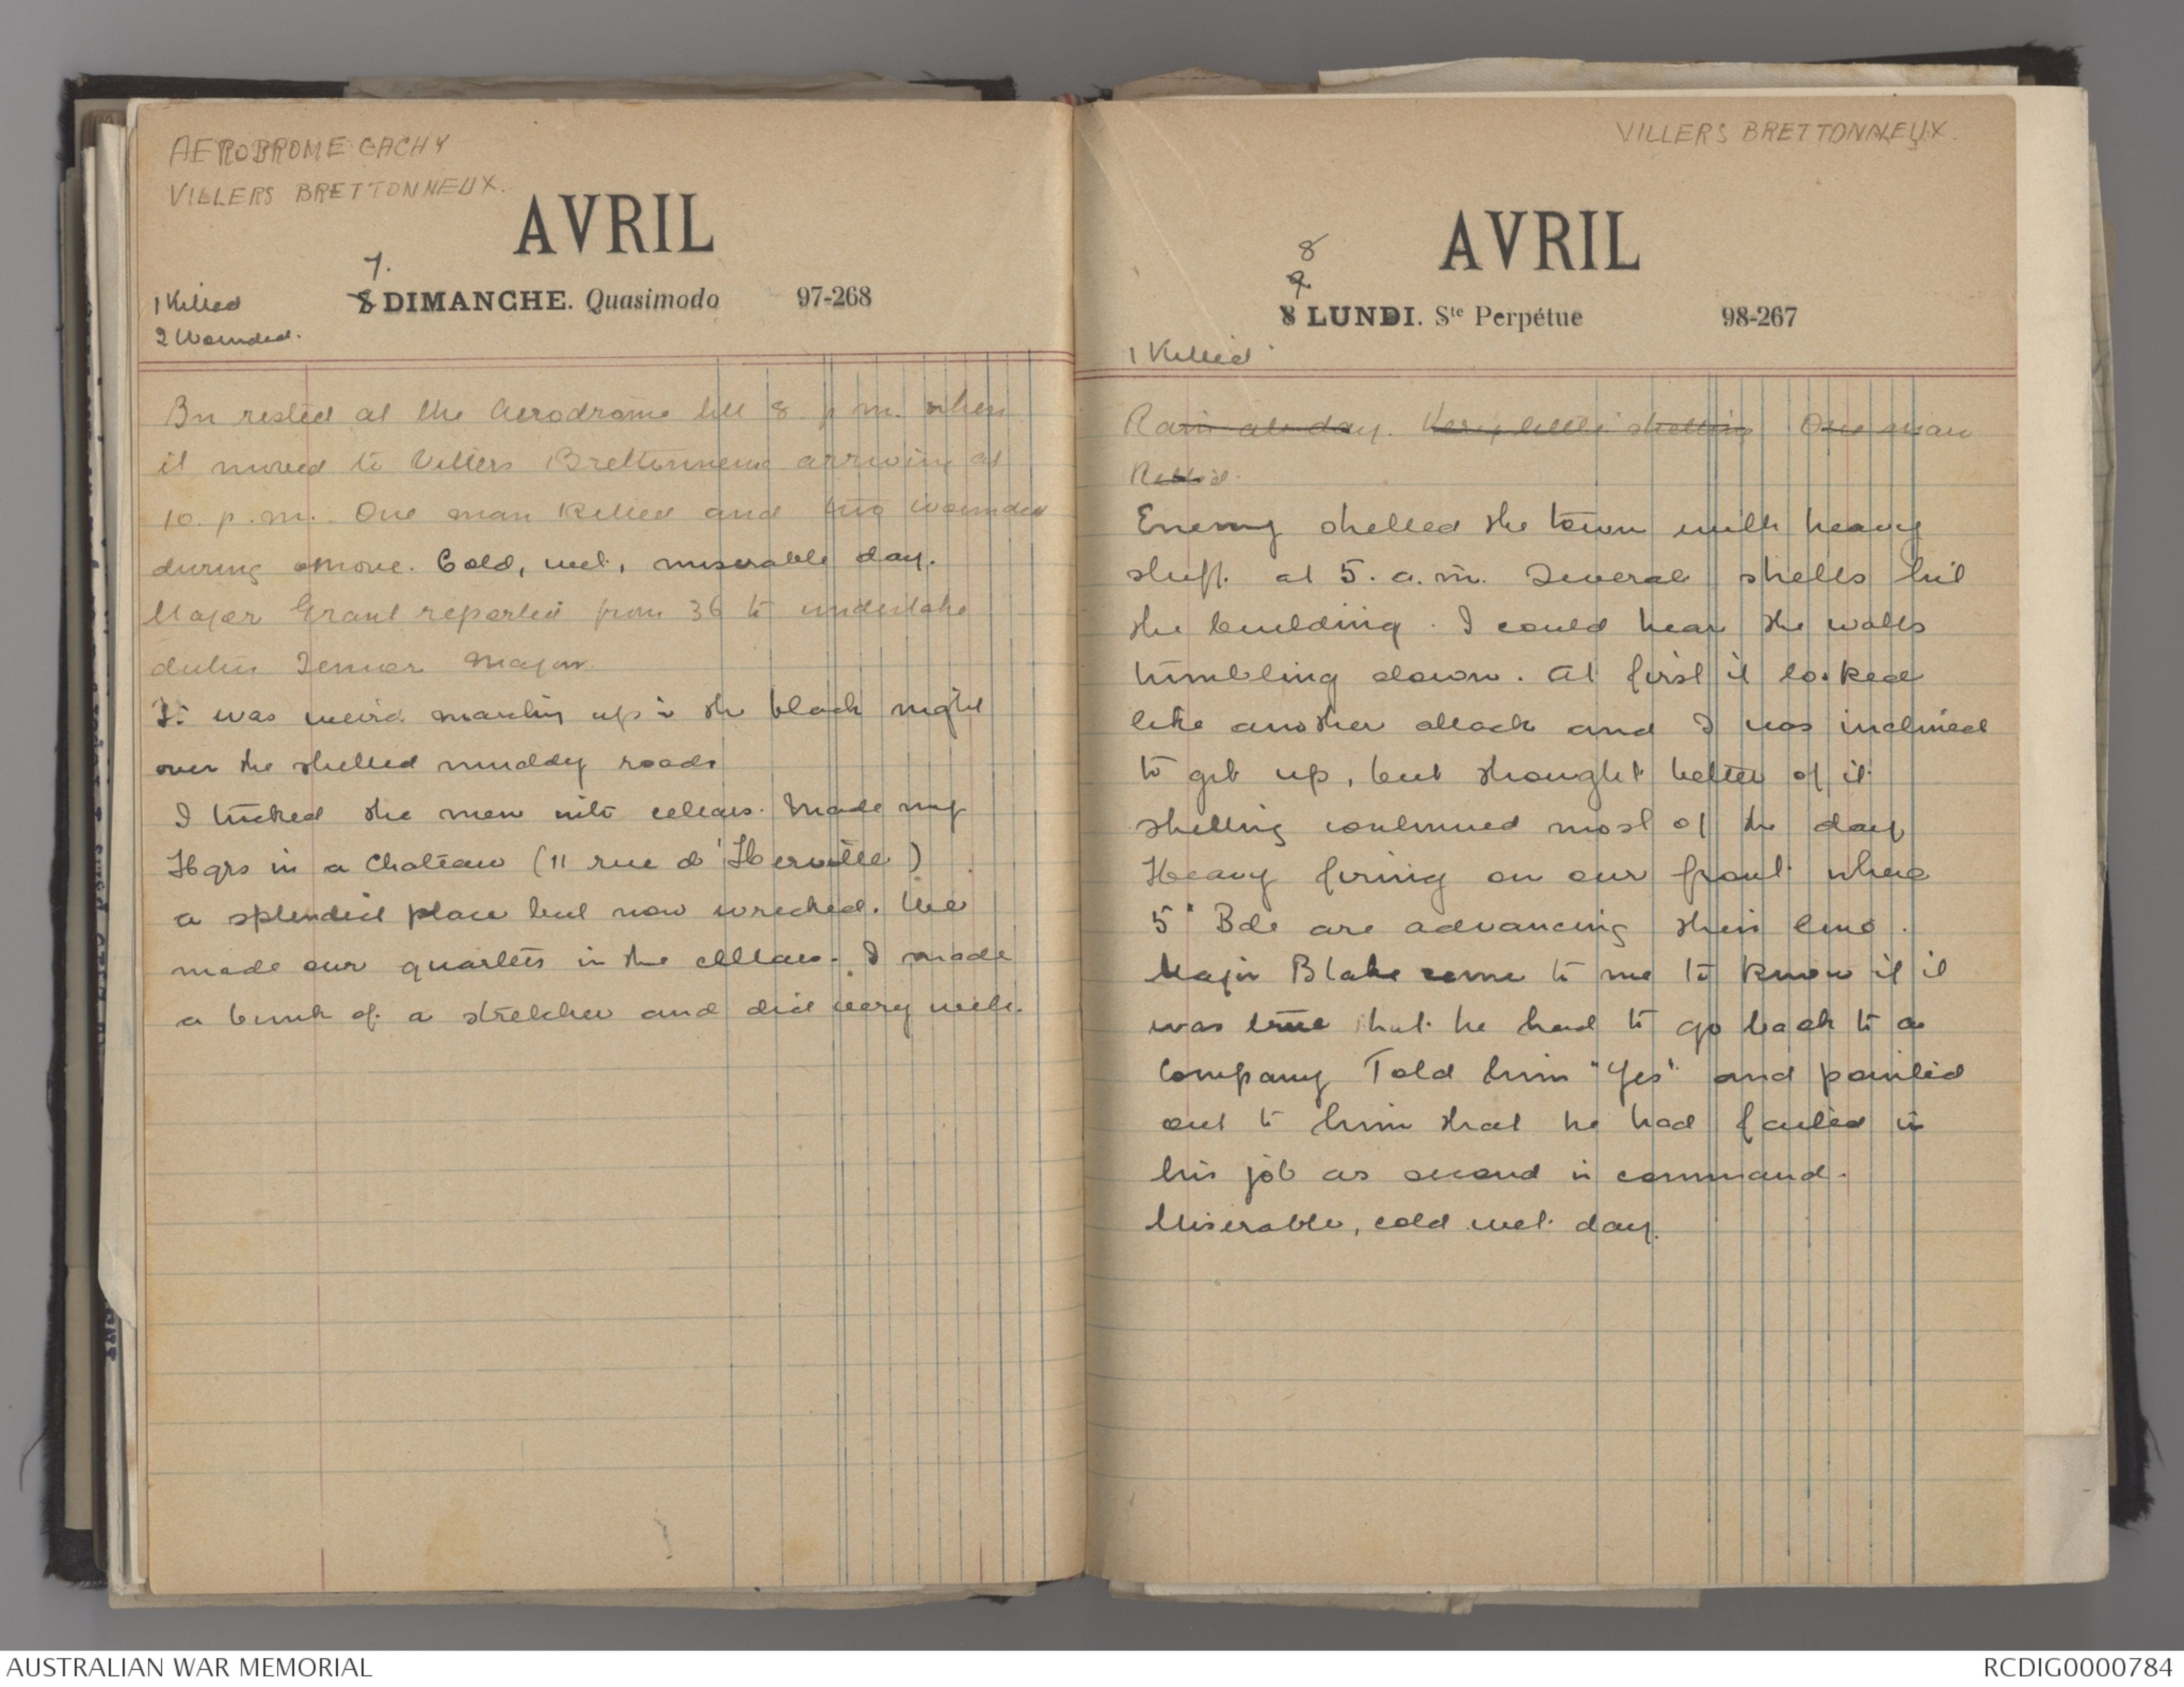 AERODROME CACHY
VILLERS BRETTONNEUX.
AVRIL
7.
8 DIMANCHE. Quasimodo 97-268
1 Killed
2 Wounded.
Bn rested at the Aerodrome till 8 p.m. when
it moved to Villers Brettonneux arriving at
10. p.m. One man killed and two wounded
during move. Cold, wet, miserable day.
Major Grant reported from 36 to undertake
duties Senior Major.
It was weird marching up in the black night
over the shelled muddy roads
I tucked the men into cellars. Made my
Hqrs in a Chateau (11 rue d'Herville)
a splendid place but now wrecked. We
made our quarters in the cellars. I made
a bunk of a stretcher and did very well.
VILLERS BRETTONNEUX.
AVRIL
8
9
8 LUNDI. Ste Perpétue 98-267
1 Killed
Rain all day. Very little shelling One man
Killed.
Enemy shelled the town with heavy
stuff. at 5. a.m. Several shells hit
the building. I could hear the walls
tumbling down. At first it looked
like another attack and I was inclined
to get up, but thought better of it
Shelling continued most of the day
Heavy firing on our front where
5" Bde are advancing their line.
Major Blake come to me to know if it
was true that he had to go back to a
Company Told him "Yes" and pointed
out to him that he had failed in
his job as second in command.
Miserable, cold wet day.
AUSTRALIAN WAR MEMORIAL
RCDIG0000784